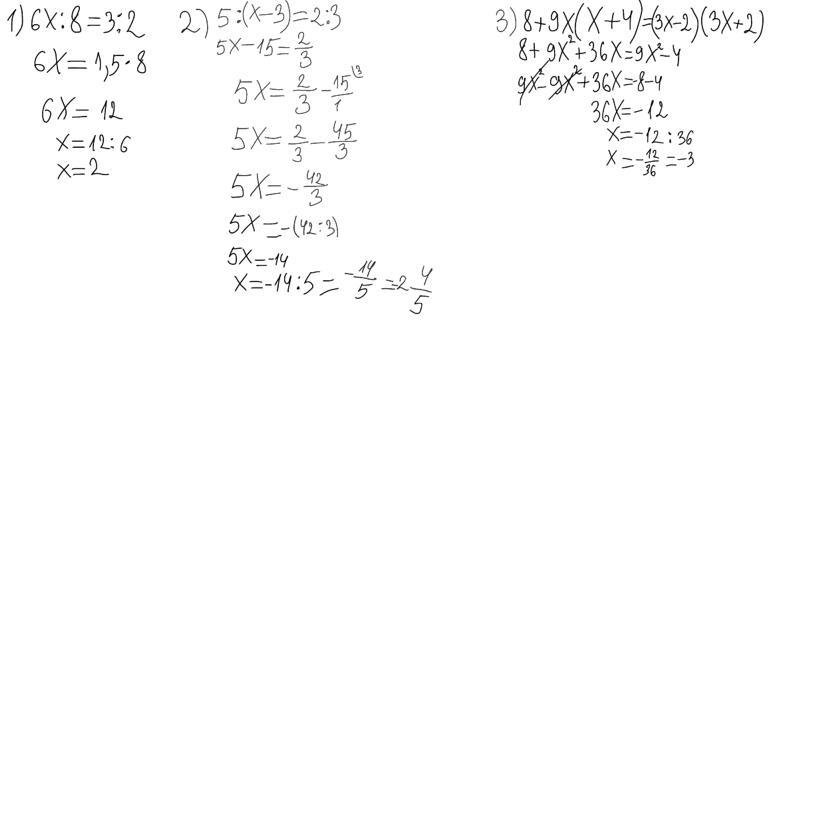 1) 6x:8=3:2
6x=1,5·8
6x=12
x=12:6
x=2
2) 5:(x-3)=2:3
5x-15=2/3
5x=2/3-15/1 (3
5x=2/3-45/3
5x=-42/3
5x=-(42:3)
5x=-14
x=-14:5=-14/5=-2 4/5
3) 8+9x(x+4)=(3x-2)(3x+2)
8+9x²+36x=9x²-4
9x²-9x²+36x=-8-4
36x=-12
x=-12:36
x=-12/36=-3